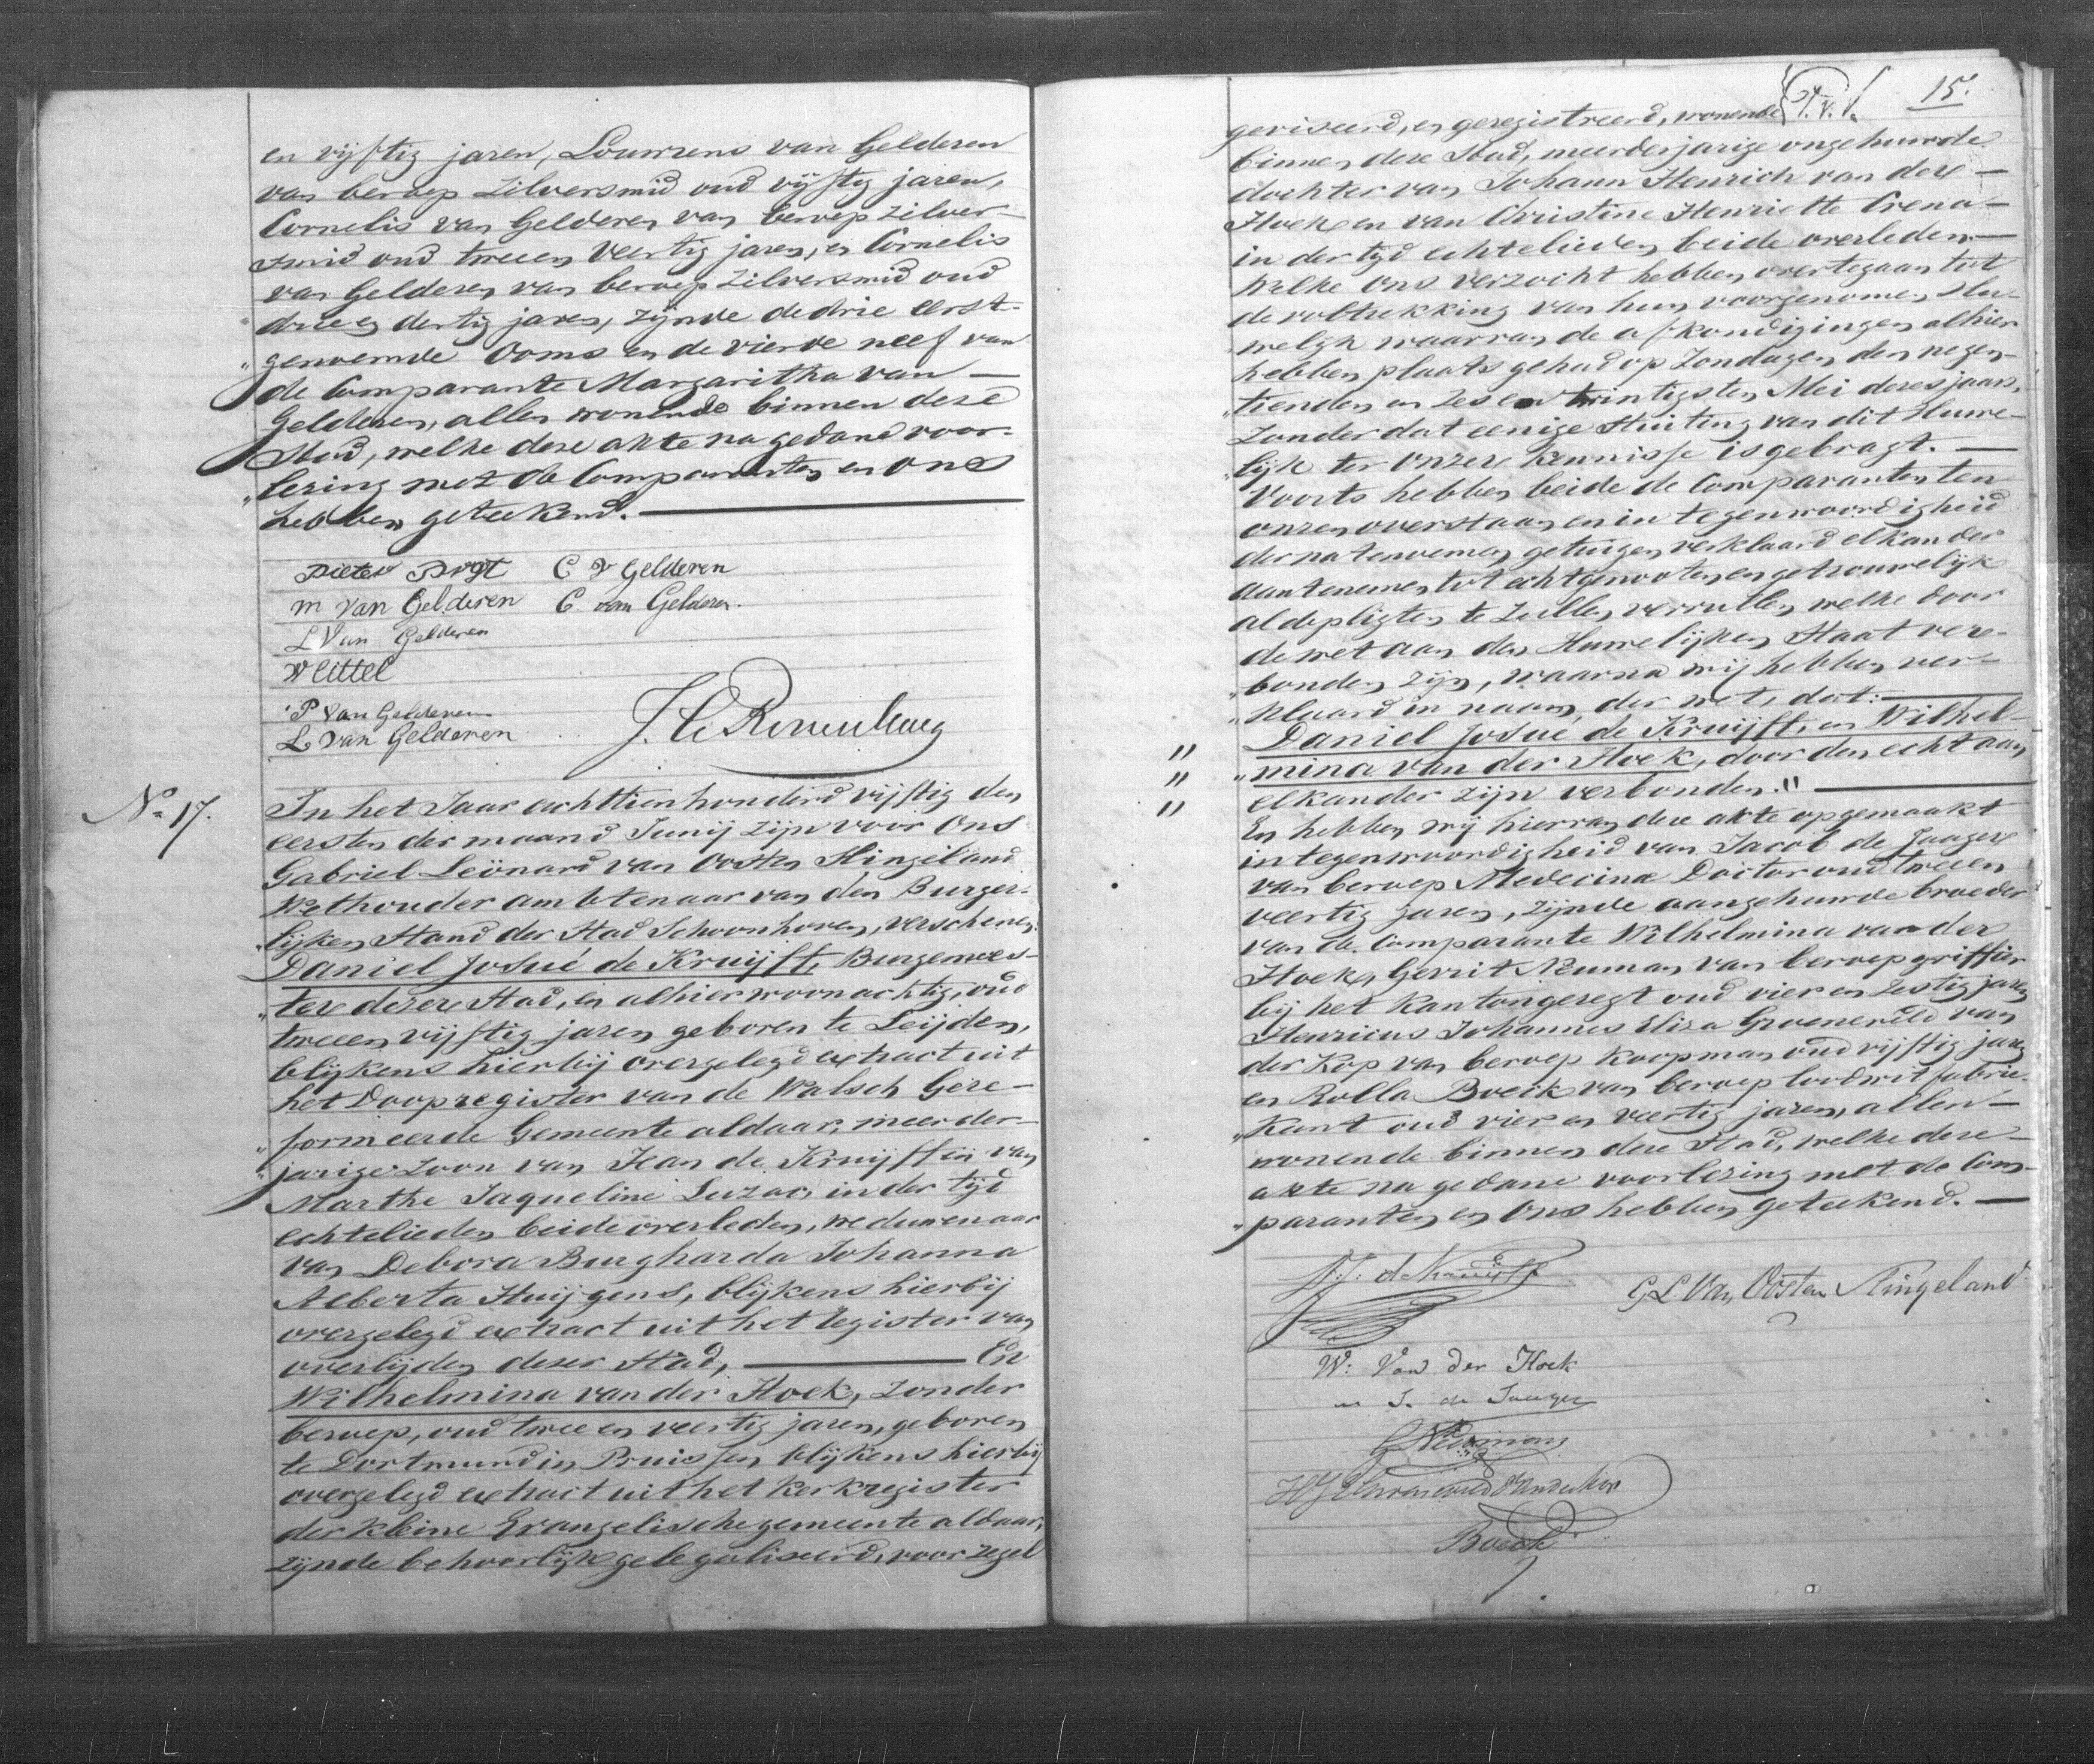 en vijftig jaren, Louwrens van Gelderen
van beroep Zilversmid oud vijftig jaren,
Cornelis van Gelderen van beroep Zilver-
smid oud tweeen Veertig jaren, en Cornelis
van Gelderen van beroep Zilversmid oud
drie en dertig jaren, zijnde de drie eerst-
„genoemde Ooms en de vierde neef van
de Comparante Margaritha van —
Gelderen, allen wonende binnen deze
Stad, welke deze akte na gedane voor-
„lezing met de Comparanten en ons
hebben geteekend. —
Pieter C V Gelderen
M van Gelderen C. van Gelderen.
L Van Gelderen
W Uttel
P Van Gelderen
L van Gelderen
No 17.
In het Jaar achttienhonderd vijftig den
eersten der maand Junij zijn voor Ons
Gabriel Leönard van Oosten Slingeland
Wethouder ambtenaar van den Burger-
„lijken Stand der Stad Schoonhoven, verschenen:
Daniel Josué de Kruijft, Burgemees-
„ter dezer Stad, en alhier woonachtig, oud
tweeen vijftig jaren geboren te Leijden,
blijkens hierbij overgelegd extract uit
het Doopregister van de Walsch Gere-
„formeerde Gemeente aldaar, meerder-
„jarige Zoon van Jean de Kruijft en van
Marthe Jaqueline Luzac, in der tijd
echtelieden beide overleden, weduwenaar
van Debora Burgharda Johanna
Alberta Huijgens, blijkens hierbij
overgelegd extract uit het register van
overlijden dezer Stad, — En
Wilhelmina van der Hoek, zonder
beroep, oud twee en veertig jaren, geboren
te Dortmund in Pruissen blijkens hierbij
overgelegd extract uit het Kerkregister
der kleine Evangelische gemeente aldaar,
zijnde behoorlijk gelegaliseerd, voor zegel
15.
geviseerd, en geregistreerd, wonende
binnen deze Stad, meerderjarige ongehuwde
dochter van Johann Henrich van der —
Hoek en van Christine Henriette Crena —
in der tijd echtelieden beide overleden —
Welke Ons verzocht hebben overtegaan tot
de voltrekking van hun voorgenomen Hu-
„welijk waarvan de afkondigingen alhier
hebben plaats gehad op Zondagen den negen-
„tienden en zes en twintigsten Mei dezes jaars,
Zonder dat eenige Stuiting van dit Huwe-
„lijk ter onzer kennisse is gebragt. —
Voorts hebben beide de Comparanten ten
onzen overstaan en in tegenwoordigheid
der natenoemen getuigen verklaard elkander
aantenemen tot echtgenooten en getrouwelijk
al de pligten te zullen vervullen, welke door
de wet aan den Huwelijken Staat ver-
„bonden zijn, waarna wij hebben ver-
„klaard in naam der wet, dat: —
" Daniel Josué de Kruijft, en Wilhel-
" „mina van der Hoek, door den echt aan
" elkander zijn verbonden." —
En hebben wij hiervan deze akte opgemaakt
in tegenwoordigheid van Jacob de Jaager
van beroep Medecinae Doctor oud tweeen
veertig jaren, zijnde aangehuwde broeder
van de Comparante Wilhelmina van der
Hoek, Gerrit Neuman van beroep griffier
bij het Kantongeregt oud vier en zestig jaren
Henricus Johannes Eliza Groeneveld van
der Kop van beroep koopman oud vijftig jaren
en Rolla Boeck van beroep loodwit fabrie-
„kant oud vier en veertig jaren, allen —
wonende binnen deze Stad, welke deze —
akte na gedane voorlezing met de Com-
„paranten en Ons hebben geteekend. —
D. J. de Kruijft
G L Van Oosten Slingeland
W: Van der Hoek
J. de Jaager
Boeck